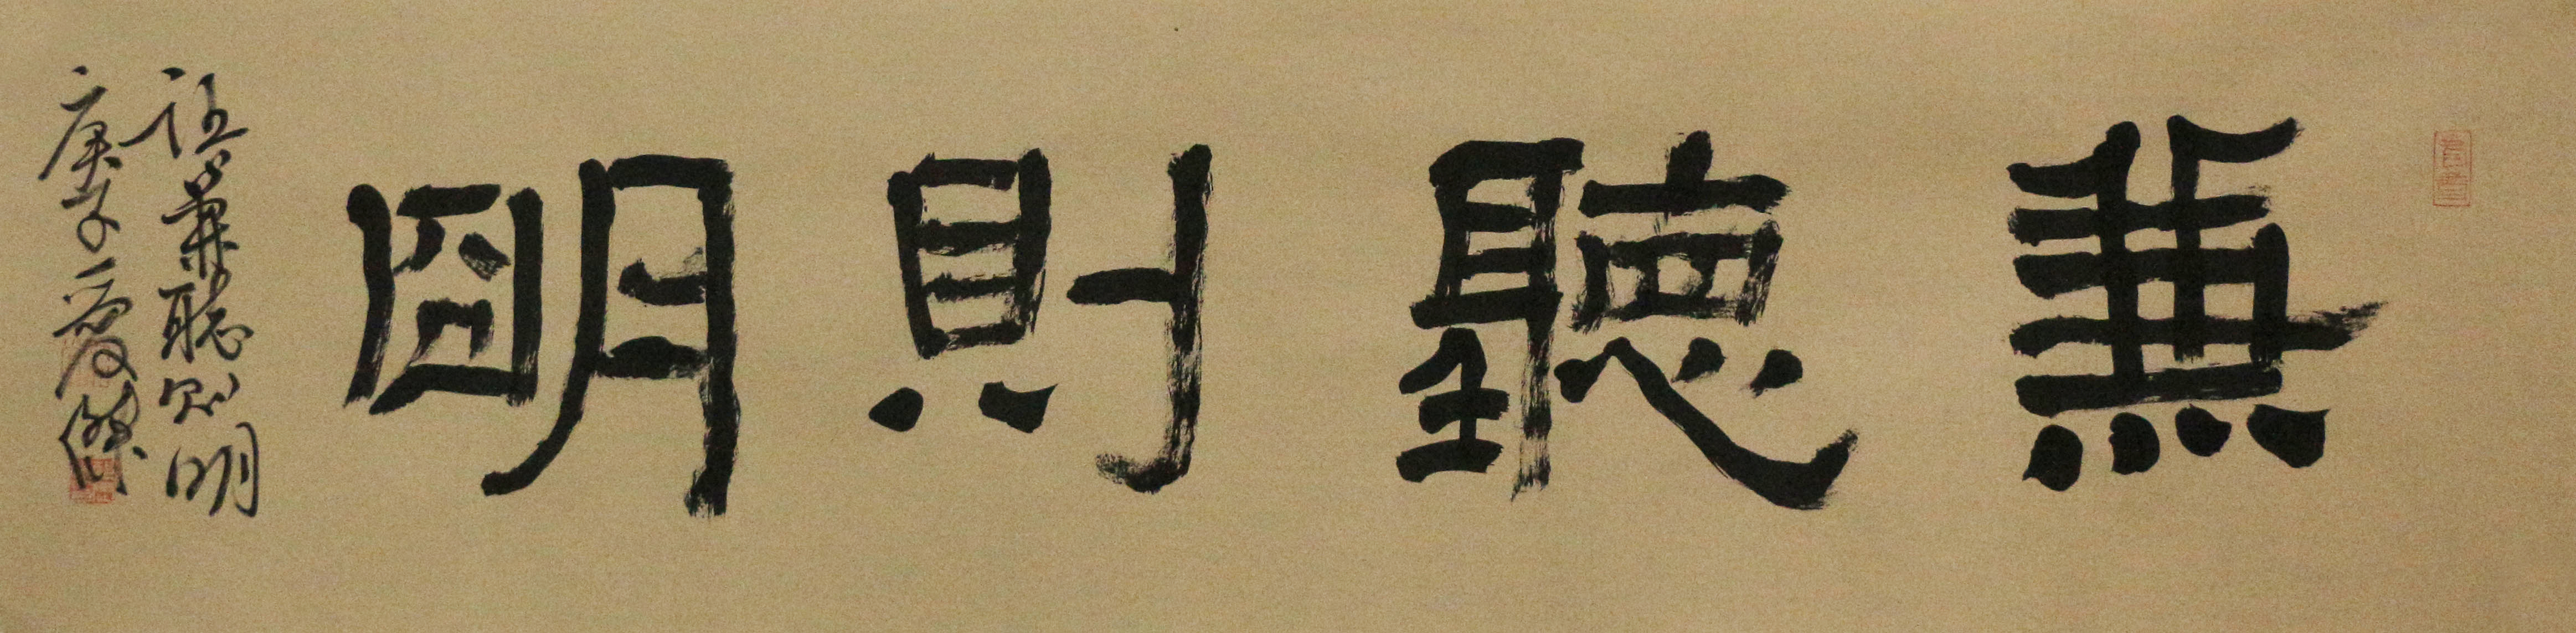 兼聽則明
兼聽则明
庚子